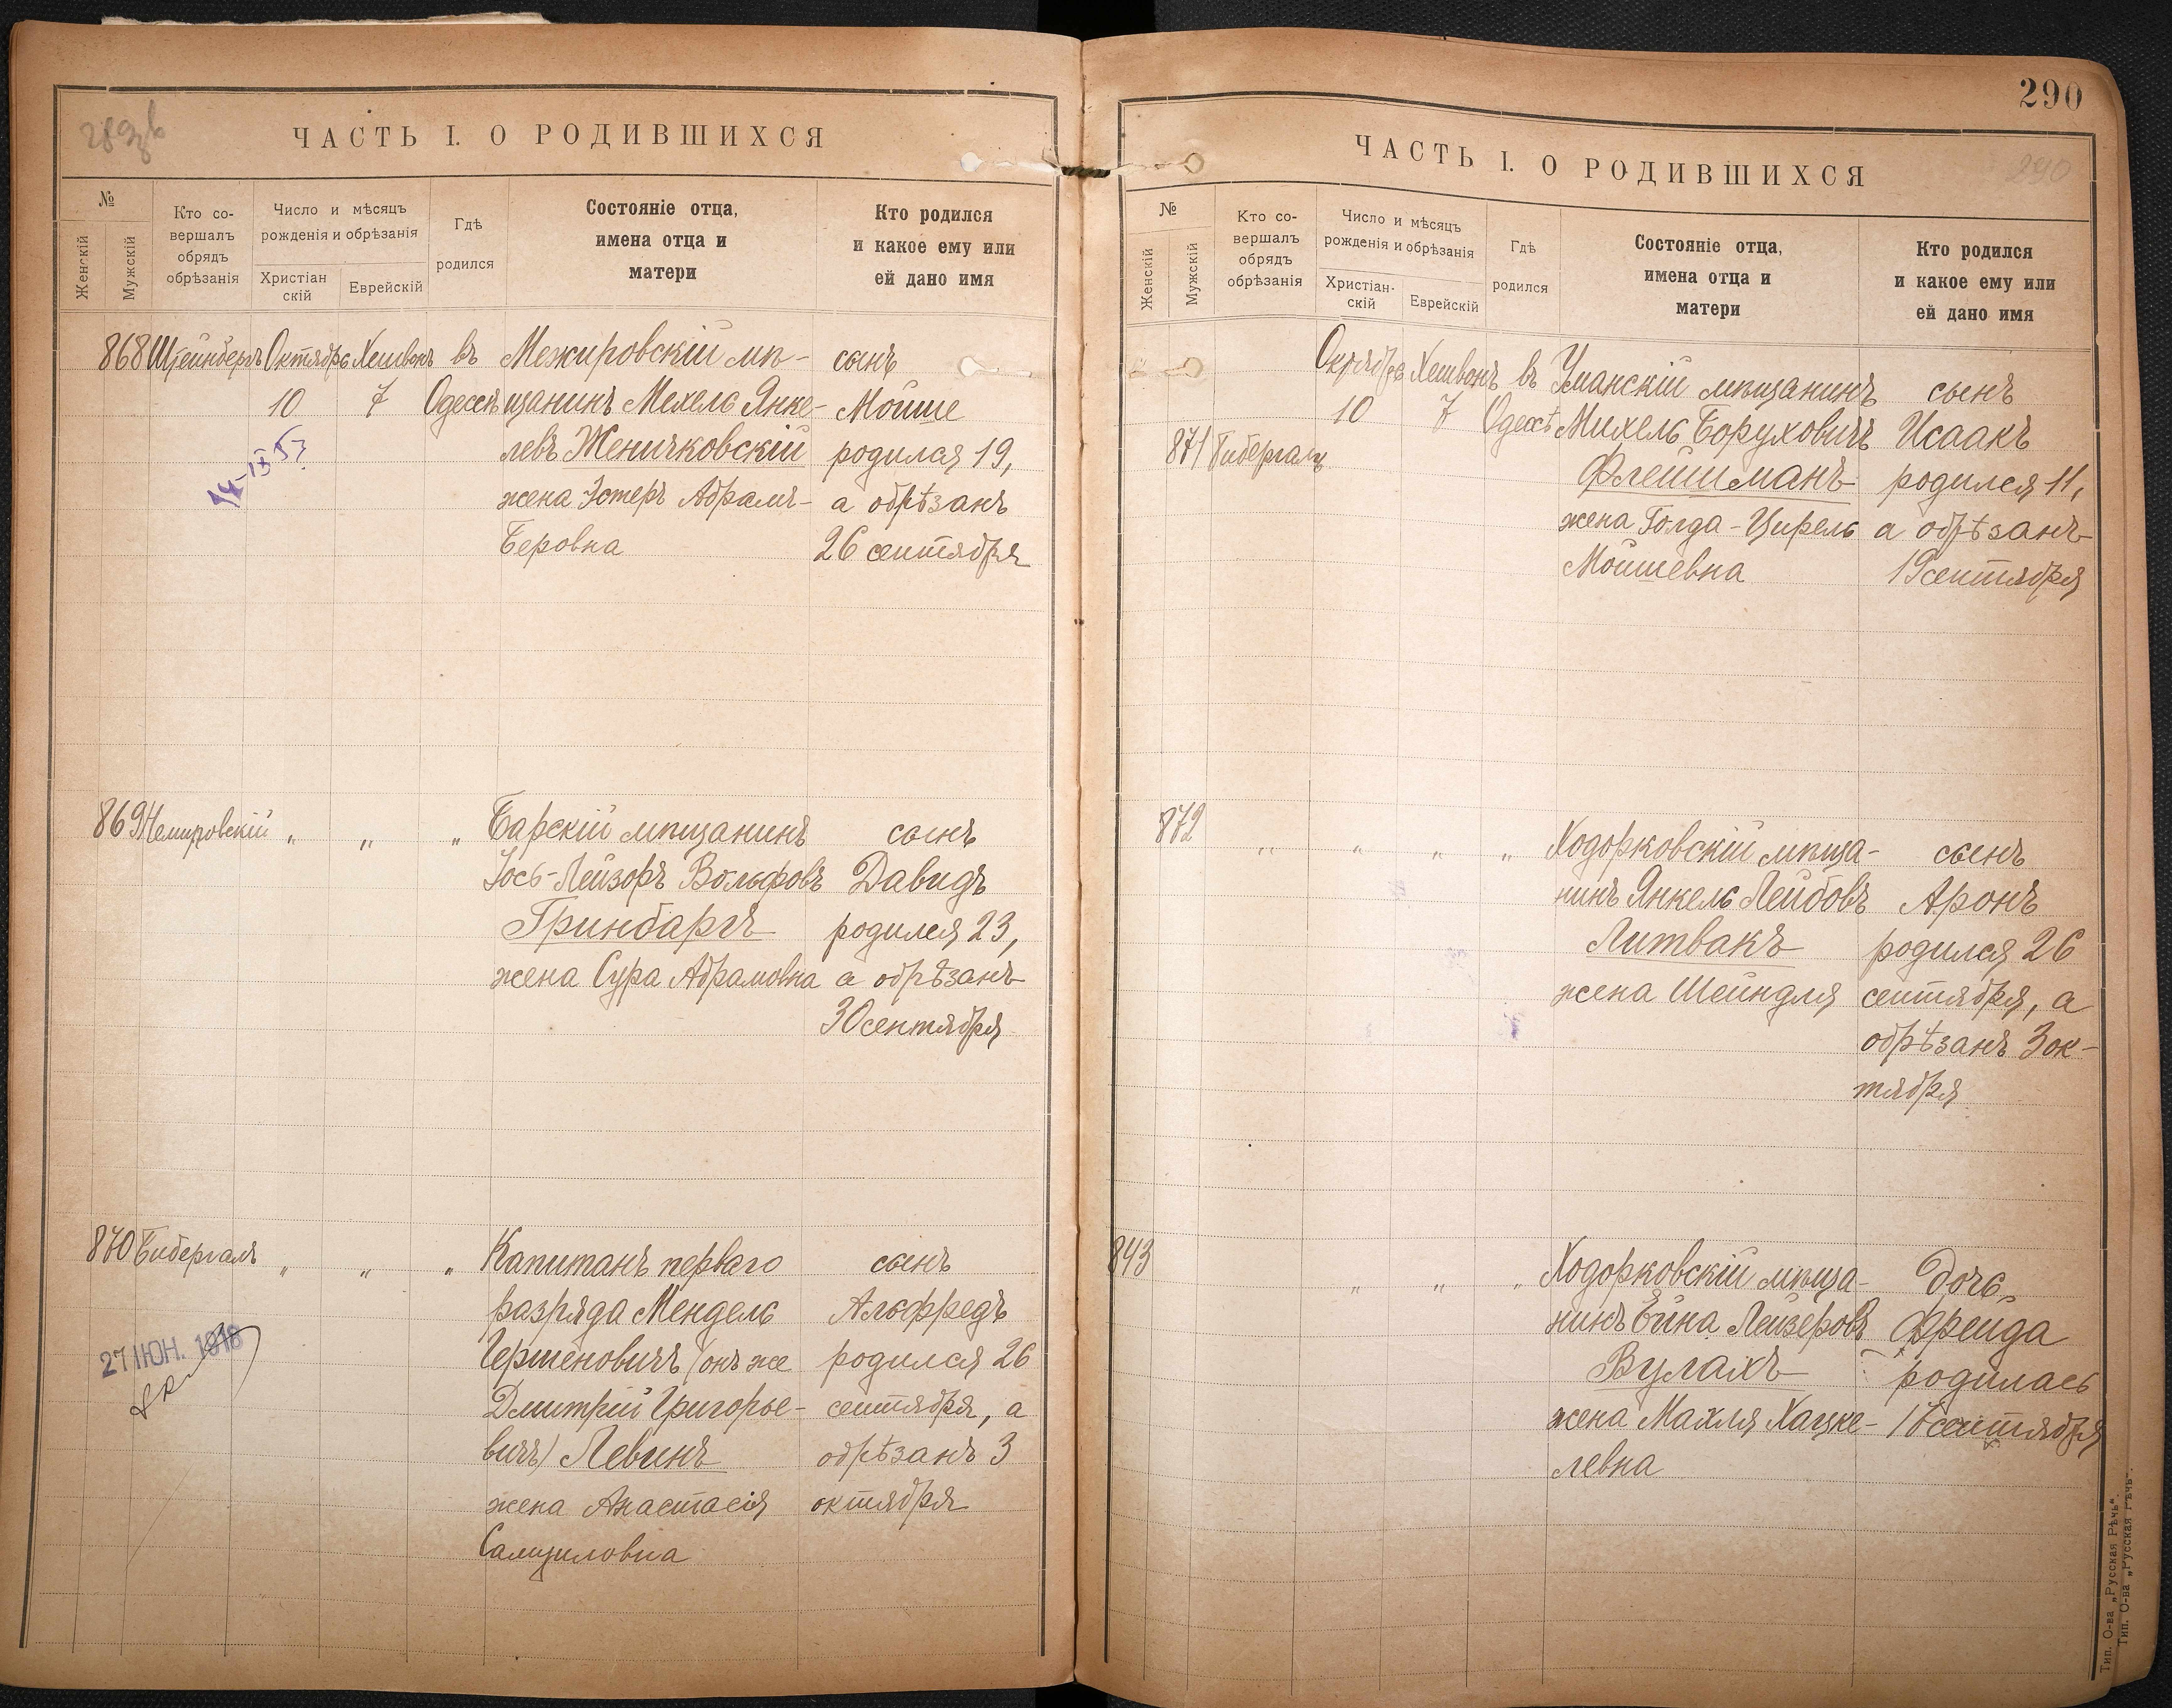 289 в
ЧАСТЬ I. О РОДИВШИХСЯ
№
Женскій
Мужскій
Кто со-
вершалъ
обрядъ
обрѣзанія
Число и мѣсяцъ
рожденія и обрѣзанія
Христіан
скій
Еврейскій
Гдѣ
родился
Состояніе отца,
имена отца и
матери
Кто родился
и какое ему или
ей дано имя
868 Штейнбергъ Октябрь Хешвонъ въ Межировскій мѣ- сынъ
10 7 Одессѣ щанинъ Мехель Янке- Мойше
левъ Женичковскій родился 19,
жена Эстеръ Абрамъ- а обрѣзанъ
Беровна 26 сентября
869 Немировскій „ „ „ Барскій мѣщанинъ сынъ
Іось-Лейзоръ Вольфовъ Давидъ
Гринбаргъ родился 23,
жена Сура Абрамовна а обрѣзанъ
30 сентября
870 Бибергалъ „ „ „ Капитанъ перваго сынъ
разряда Мендель Альфредъ
Гершеновичъ (онъ же родился 26
27 ІЮН. 1918
Дмитрій Григорье- сентября, а
вичъ) Левинъ обрѣзанъ 3
жена Анастасія октября
Самуиловна
290
ЧАСТЬ I. О РОДИВШИХСЯ
290
№
Женскій
Мужскій
Кто со-
вершалъ
обрядъ
обрѣзанія
Число и мѣсяцъ
рожденія и обрѣзанія
Христіан-
скій
Еврейскій
Гдѣ
родился
Состояніе отца,
имена отца и
матери
Кто родился
и какое ему или
ей дано имя
Октябрь Хешвонъ въ Уманскій мѣщанинъ сынъ
10 7 Одессѣ Михель Боруховичъ Исаакъ
871 Бибергалъ Флейшманъ родился 11,
жена Голда-Цирель а обрѣзанъ
Мойшевна 19 сентября
872 „ „ „ „ Ходорковскій мѣща- сынъ
нинъ Янкель Лейбовъ Аронъ
Литвакъ родился 26
жена Шейндля сентября, а
обрѣзанъ 3 ок-
тября
843 „ „ „ Ходорковскій мѣща- дочь
нинъ Ейна Лейзеровъ Фрейда
Вулахъ родилась
жена Махля Хацке- сентября
левна
Тип. О-ва „Русская Рѣчь“.
Тип. О-ва „Русская Рѣчь“.